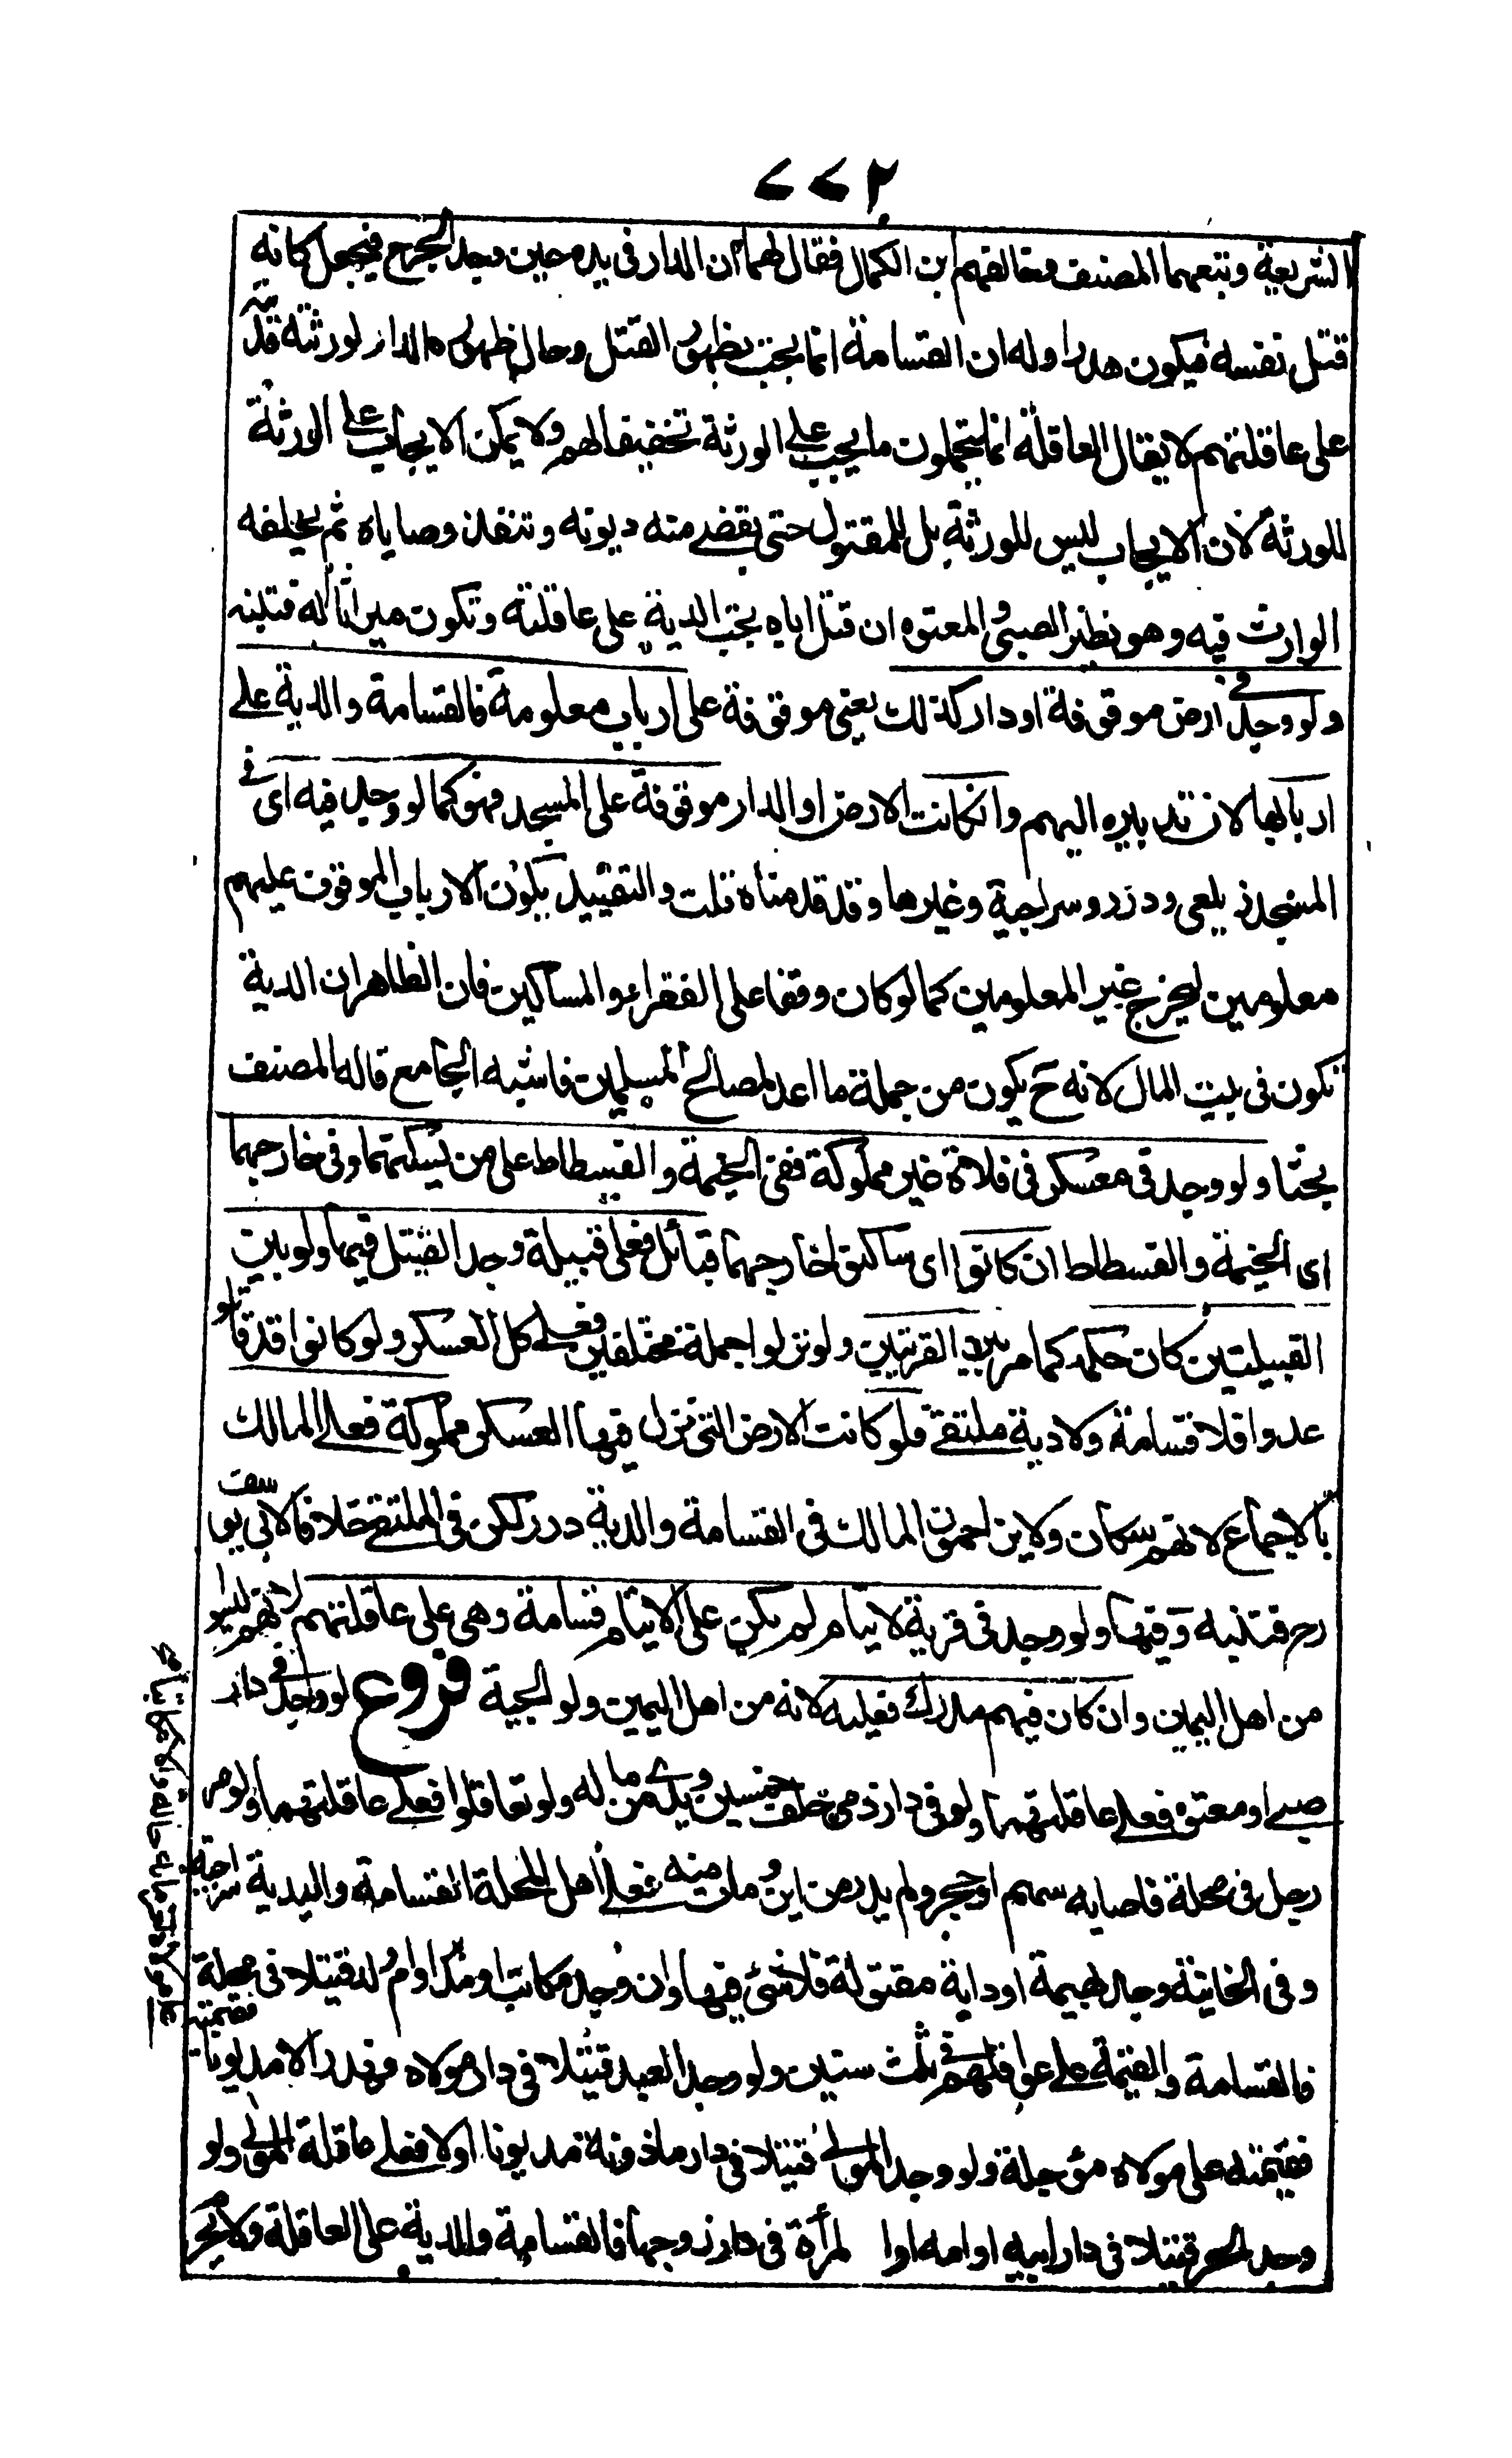 ٢٧٧
الشريعة وتبعهما المصنف وخالفهم ابن الكمال فقال لهما ان الدار فى يده حين وجد الجرح فيجعل كانه
قتل نفسه فيكون هدرا وله ان القسامة انما يجب بظهور القتل وحال ظهوره الدار لورثته فديته
على عاقلتهم لا يقال العاقلة انما يتحملون ما يجب على الورثة تخفيفا لهم ولا يمكن الايجاب على الورثة
للورثة لان الايجاب ليس للورثة بل للمقتول حتى يقضى منه ديونه وتنفذ وصاياه ثم يخلفه
الوارث فيه وهو نظير الصبى والمعتوه ان قتل اباه يجب الدية على عاقلته وتكون ميراثا له فتنبه
ولو وجد فى ارض موقوفة او دار كذلك يعنى موقوفة على ارباب معلومة فالقسامة والدية على
اربابها لان تدبيره اليهم وانكانت الارض او الدار موقوفة على المسجد فهو كما لو وجد فيه اى فى
المسجد زيلعى ودرر وسراجية وغيرها وقد قدمناه قلت والتقييد بكون الارباب الموقوف عليهم
معلومين ليخرج غير المعلومين كما لو كان وقفا على الفقراء والمساكين فان الظاهر ان الدية
تكون فى بيت المال لانه ح يكون من جملة ما اعد لمصالح المسلمين فاشبه الجامع قاله المصنف
بحثا ولو وجد فى معسكر فى فلاة غير مملوكة ففى الخيمة والفسطاط على من يسكنهما وفى خارجهما
اى الخيمة والفسطاط ان كانوا اى ساكنوا خارجهما قبائل فعلى قبيلة وجد القتيل فيها ولو بين
القبيلتين كان حكمه كما مر بين القريتين ولو نزلوا جملة مختلفين فعلى كل العسكر ولو كانوا قد قاتلوا
عدوا فلا قسامة ولا دية ملتقى فلو كانت الارض التى نزل فيها العسكر مملوكة فعلى المالك
بالاجماع لانهم سكان ولا يزاحمون المالك فى القسامة والدية درر لكن فى الملتقى خلافا لابى يوسف
رح فتنبه وفيها ولو وجد فى قرية لايتام لم يكن على الايتام قسامة وهى على عاقلتهم لانهم ليسوا
من اهل اليمين وان كان فيهم مدرك فعليه لانه من اهل اليمين ولوالجية فروع لو وجد فى دار
صبى او معتوه فعلى عاقلتهما ولو فى دار ذمى حلف خمسين ويدى من ماله ولو تعاقلوا فعلى عاقلتهما ولو مر
رجل فى محلة فاصابه سهم او حجر ولم يدر من اين ومات منه فعلى اهل المحلة القسامة والدية سراجية
وفى الخانية وجد بهيمة او دابة مقتولة فلا شئ فيها وان وجد مكاتبا او مدبرا او ام ولد قتيلا فى محلة
فالقسامة والقيمة على عواقلهم فى ثلث سنين ولو وجد العبد قتيلا فى دار مولاه فهدر الا مديونا فقيمته
فقيمته على مولاه مؤجلة ولو وجد المولى قتيلا فى دار ماذونه مديونا اولا فعلى عاقلة المولى ولو
وجد الحر قتيلا فى دار ابيه او امه او المرأة فى دار زوجها فالقسامة والدية على العاقلة ولا يحر